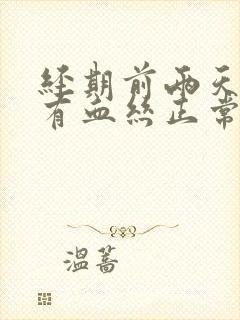 經期前兩天
有血絲正常
溫蒿